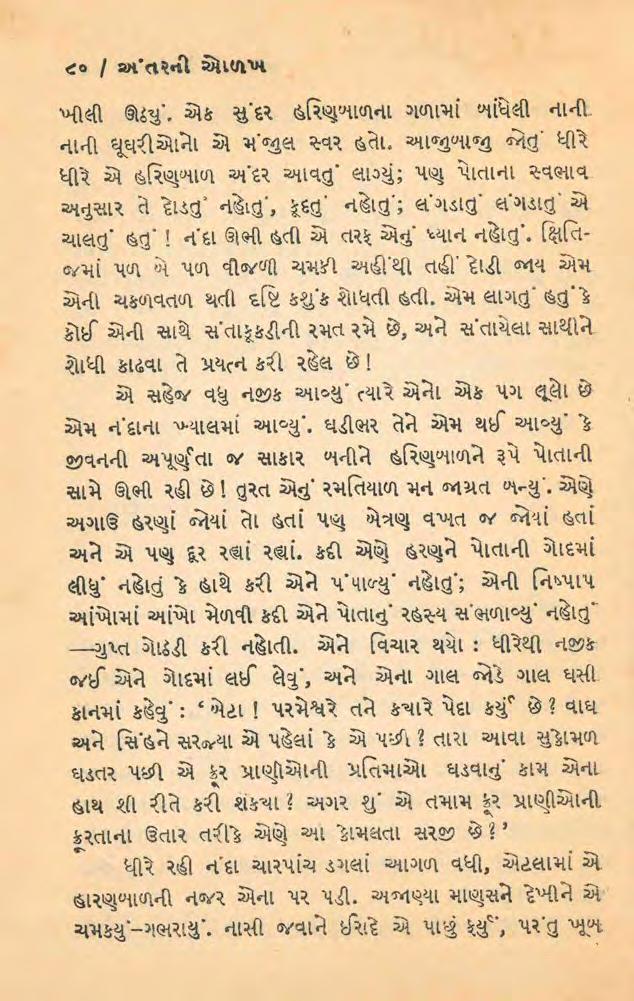 ૮૦ / અંતરની ઓળખ
ખીલી ઊઠ્યું. એક સુંદર હરિણબાળના ગળામાં બાંધેલી નાની
નાની ઘૂઘરીઓનો એ મંજુલ સ્વર હતો. આજુબાજુ જોતું ધીરે
ધીરે એ હરિણબાળ અંદર આવતું લાગ્યું; પણ પોતાના સ્વભાવ
અનુસાર તે દોડતું નહોતું, કૂદતું નહોતું; લંગડાતું લંગડાતું એ
ચાલતું હતું ! નંદા ઊભી હતી એ તરફ એનું ધ્યાન નહોતું. ક્ષિતિ-
જમાં પળ બે પળ વીજળી ચમકી અહીંથી તહીં દોડી જાય એમ
એની ચકળવતળ થતી દૃષ્ટિ કશુંક શોધતી હતી. એમ લાગતું હતું કે
કોઈ એની સાથે સંતાકૂકડીની રમત રમે છે, અને સંતાયેલા સાથીને
શોધી કાઢવા તે પ્રયત્ન કરી રહેલ છે !
એ સહેજ વધુ નજીક આવ્યું ત્યારે એનો એક પગ લૂલો છે
એમ નંદાના ખ્યાલમાં આવ્યું. ઘડીભર તેને એમ થઈ આવ્યું કે
જીવનની અપૂર્ણતા જ સાકાર બનીને હરિણબાળને રૂપે પોતાની
સામે ઊભી રહી છે ! તુરત એનું રમતિયાળ મન જાગ્રત બન્યું. એણે
અગાઉ હરણાં જોયાં તો હતાં પણ બેત્રણ વખત જ જોયાં હતાં
અને એ પણ દૂર રહ્યાં રહ્યાં. કદી એણે હરણને પોતાની ગોદમાં
લીધું નહોતું કે હાથે કરી એને પંપાળ્યું નહોતું; એની નિષ્પાપ
આંખોમાં આંખો મેળવી કદી એને પોતાનું રહસ્ય સંભળાવ્યું નહોતું
—ગુપ્ત ગોઠડી કરી નહોતી. એને વિચાર થયો : ધીરેથી નજીક
જઈ એને ગોદમાં લઈ લેવું, અને એના ગાલ જોડે ગાલ ઘસી
કાનમાં કહેવું : ‘બેટા ! પરમેશ્વરે તને કયારે પેદા કર્યું છે ? વાઘ
અને સિંહને સરજ્યા એ પહેલાં કે એ પછી ? તારા આવા સુકોમળ
ઘડતર પછી એ ક્રૂર પ્રાણીઓની પ્રતિમાઓ ઘડવાનું કામ એના
હાથ શી રીતે કરી શકયા ? અગર શું એ તમામ ક્રૂર પ્રાણીઓની
ક્રૂરતાના ઉતાર તરીકે એણે આ કોમલતા સરજી છે ?’
ધીરે રહી નંદા ચારપાંચ ડગલાં આગળ વધી, એટલામાં એ
હારણબાળની નજર એના પર પડી. અજાણ્યા માણસને દેખીને એ
ચમકયું–ગભરાયું. નાસી જવાને ઈરાદે એ પાછું ફર્યું, પરંતુ ખૂબ